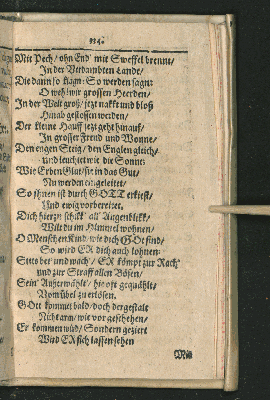 114.
Mit Pech / ohn End' mit Sweffel brennt /
In der Verdambten Lande /
Die dann so klagn: So werden sagn:
O weh! wir grossen Heerden /
In der Welt groß / jetzt nakkt und bloß
Hinab gestossen werden /
Der kleine Hauff jetzt geht hinauf /
In grosser Freud und Wonne /
Den engen Steig / den Englen gleich /
und leuchtet wie die Sonne:
Wie Erben Glut / sie in das Gut /
Nu werden eingeleitet /
So ihnen ist durch GOTT erkiest /
Und ewig vorbereitet.
Dich hierzn schikk' all' Augenblikk /
Wilt du im Himmel wohnen /
O Menschen Kind, wie dich GOtt find /
So wird ER dich auch lohnen:
Stets bet' und wach' / ER kömpt zur Rach'
und zur Straff allen Bösen /
Sein' Außerwählt' / hie oft gequählt /
Vom übel zu erlösen.
GOtt kommet bald / doch dergestalt
Nicht arm / wie vor geschehen /
Er kommen würd / Sondern geziert
Wird ER sich lassen sehen
Mit